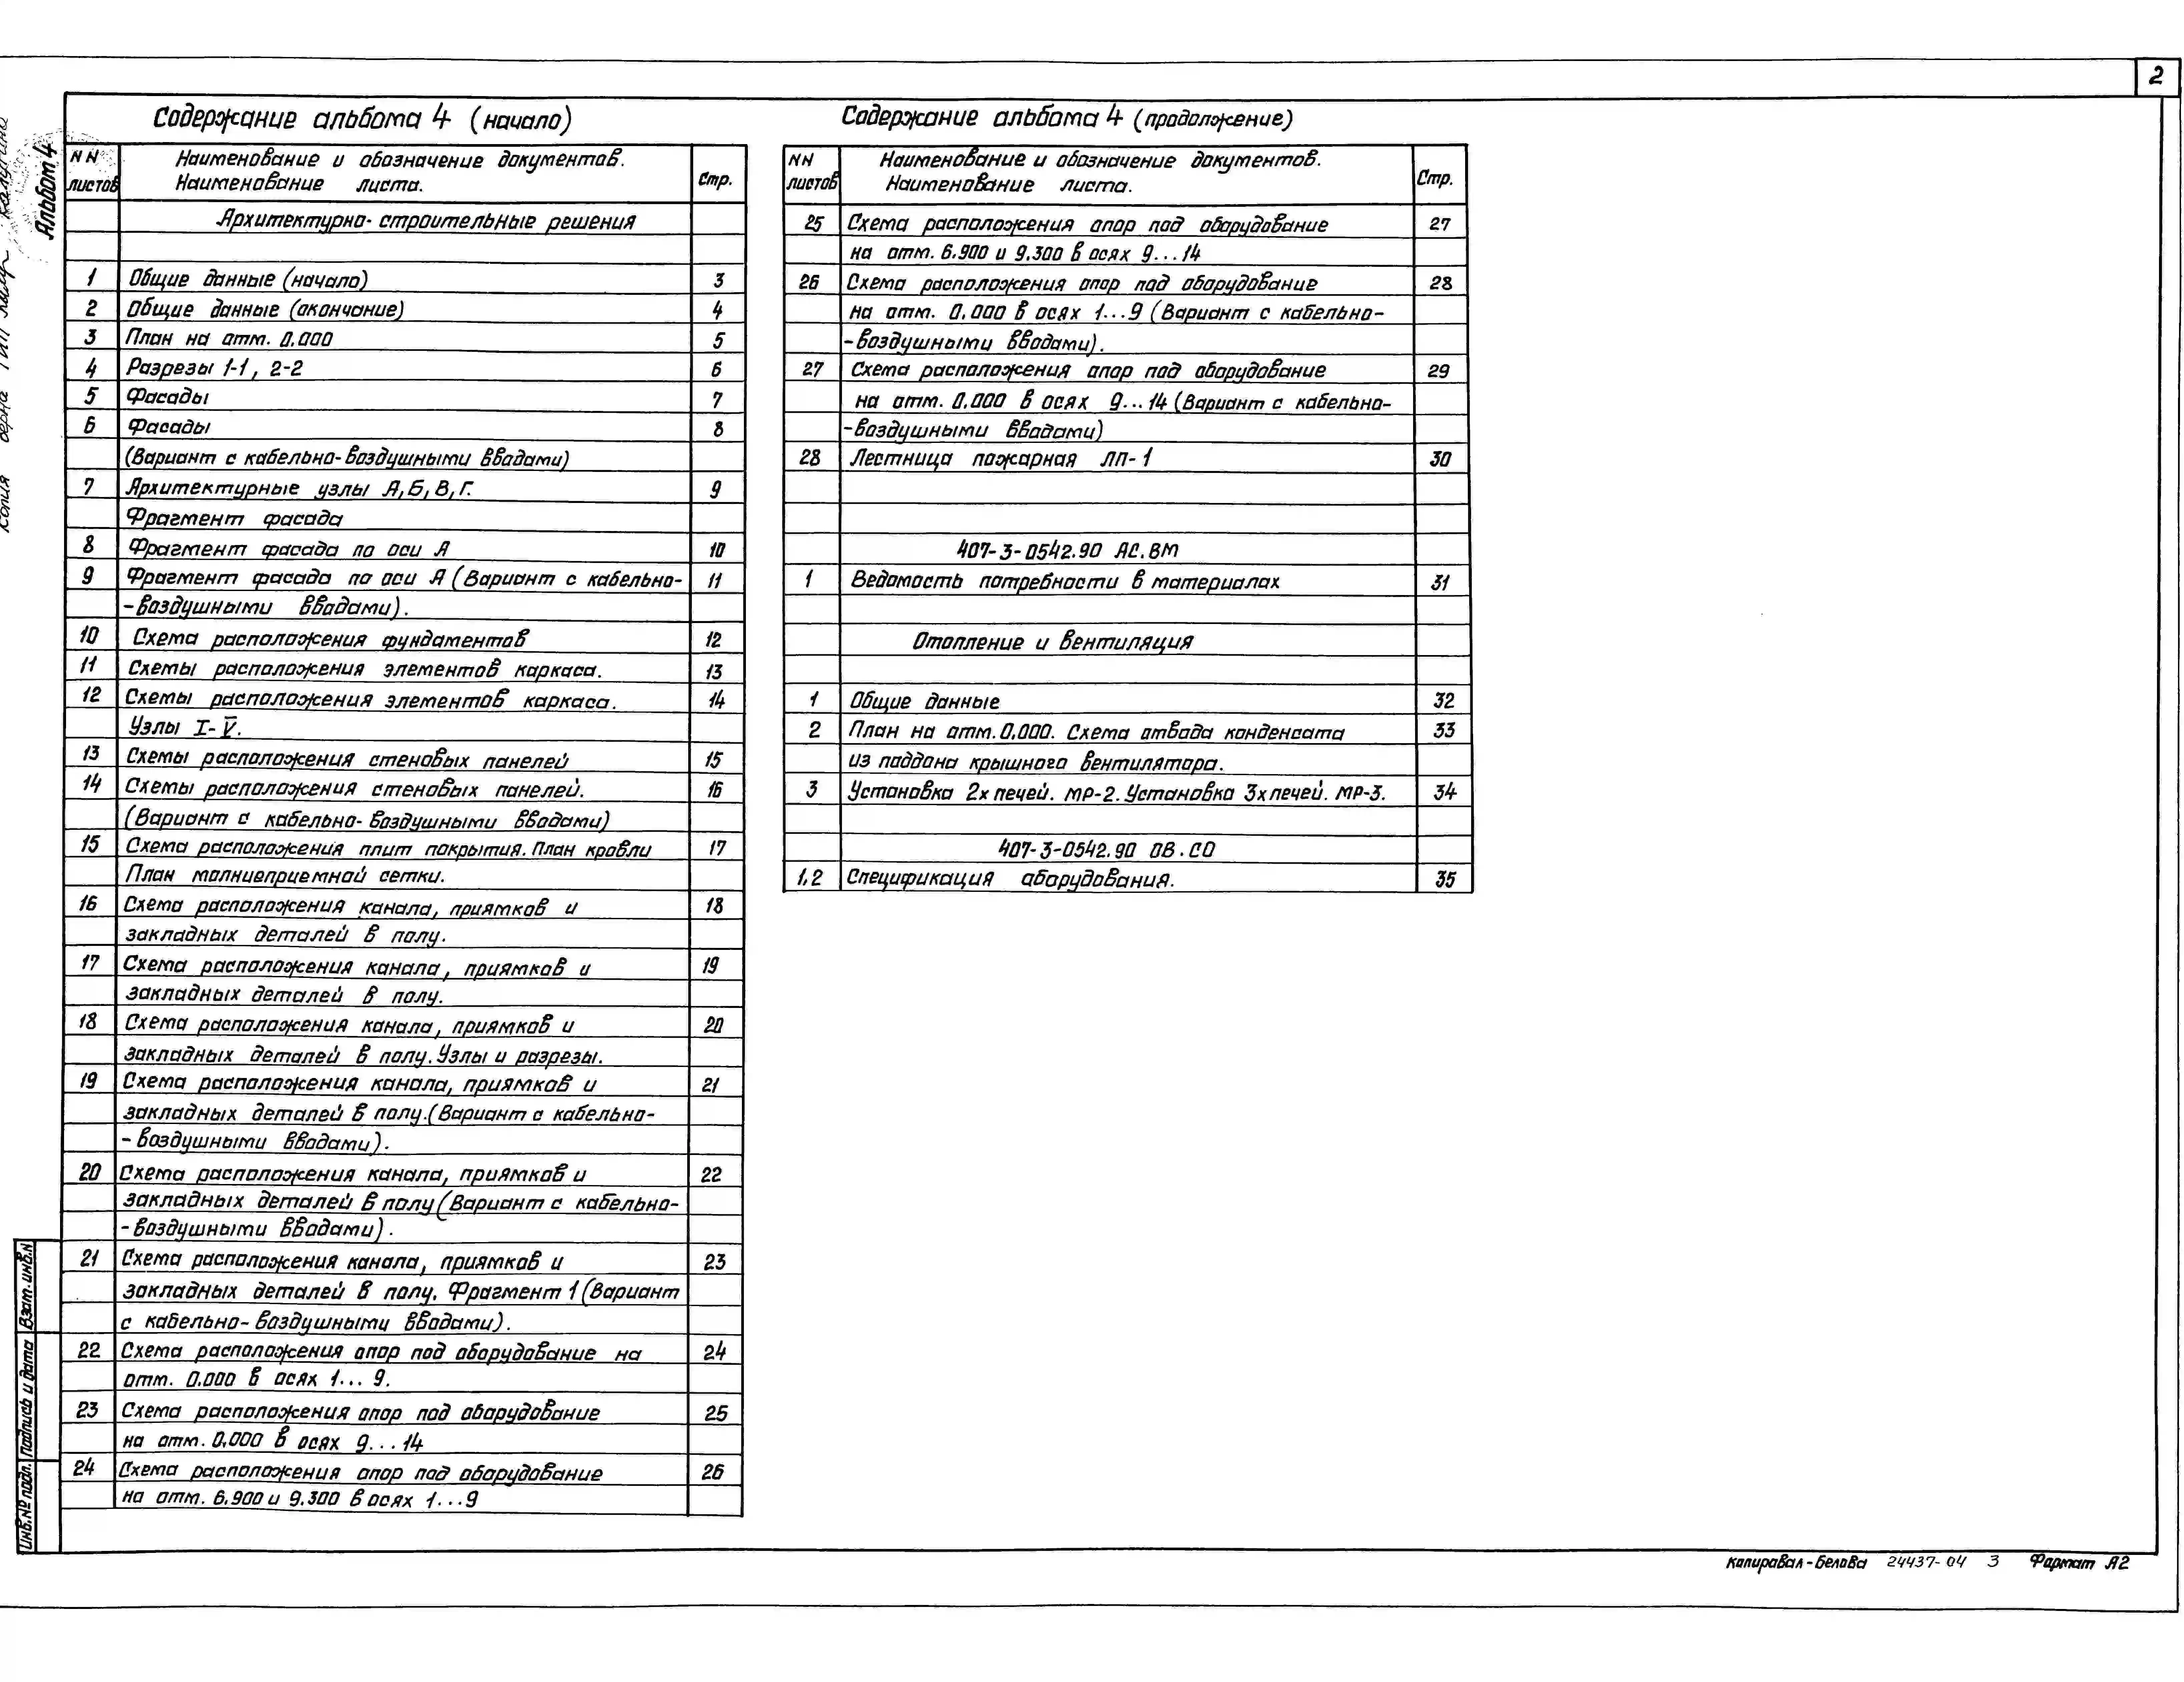 2
Альбом 4
Содержание альбома 4 (начало)
NN листов Наименование и обозначение документов. Наименование листа. Стр.
Архитектурно-строительные решения
1 Общие данные (начало) 3
2 Общие данные (окончание) 4
3 План на отм. 0.000 5
4 Разрезы 1-1, 2-2 6
5 Фасады 7
6 Фасады 8
(Вариант с кабельно-воздушными вводами)
7 Архитектурные узлы А, Б, В, Г. 9
Фрагмент фасада
8 Фрагмент фасада по оси А 10
9 Фрагмент фасада по оси А (Вариант с кабельно- 11
-воздушными вводами).
10 Схема расположения фундаментов 12
11 Схемы расположения элементов каркаса. 13
12 Схемы расположения элементов каркаса. 14
Узлы I-V.
13 Схемы расположения стеновых панелей 15
14 Схемы расположения стеновых панелей. 16
(Вариант с кабельно-воздушными вводами)
15 Схема расположения плит покрытия. План кровли 17
План молниеприемной сетки.
16 Схема расположения канала, приямков и 18
закладных деталей в полу.
17 Схема расположения канала, приямков и 19
закладных деталей в полу.
18 Схема расположения канала, приямков и 20
закладных деталей в полу. Узлы и разрезы.
19 Схема расположения канала, приямков и 21
закладных деталей в полу. (Вариант с кабельно-
-воздушными вводами).
20 Схема расположения канала, приямков и 22
закладных деталей в полу (Вариант с кабельно-
-воздушными вводами).
21 Схема расположения канала, приямков и 23
закладных деталей в полу. Фрагмент 1 (Вариант
с кабельно-воздушными вводами).
22 Схема расположения опор под оборудование на 24
отм. 0.000 в осях 1...9.
23 Схема расположения опор под оборудование 25
на отм. 0.000 в осях 9...14
24 Схема расположения опор под оборудование 26
на отм. 6.900 и 9.300 в осях 1...9
Содержание альбома 4 (продолжение)
NN листов Наименование и обозначение документов. Наименование листа. Стр.
25 Схема расположения опор под оборудование 27
на отм. 6.900 и 9.300 в осях 9...14
26 Схема расположения опор под оборудование 28
на отм. 0.000 в осях 1...9 (Вариант с кабельно-
-воздушными вводами).
27 Схема расположения опор под оборудование 29
на отм. 0.000 в осях 9...14 (Вариант с кабельно-
-воздушными вводами)
28 Лестница пожарная ЛП-1 30
407-3-0542.90 АС.ВМ
1 Ведомость потребности в материалах 31
Отопление и вентиляция
1 Общие данные 32
2 План на отм. 0.000. Схема отвода конденсата 33
из поддона крышного вентилятора.
3 Установка 2х печей. МР-2. Установка 3х печей. МР-3. 34
407-3-0542.90 ОВ.СО
1.2 Спецификация оборудования. 35
Инв.№ подл. Подпись и дата Взам.инв.N
Копия верна ГИП
Копировал-Белова 24437-04 3 Формат А2